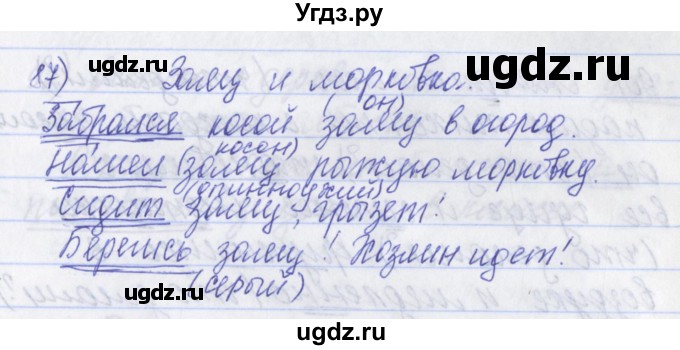 Угдз.ру
ugdz.ru ugdz.ru
87) Заяц и морковка.
(он)
Забрался косой заяц в огород.
(косой)
Нашел заяц рыжую морковку.
(длинноухий)
Сидит заяц, грызет!
Берегись заяц! Хозяин идет!
(серый)
ugdz.ru ugdz.ru
ugdz.ru ugdz.ru
ugdz.ru